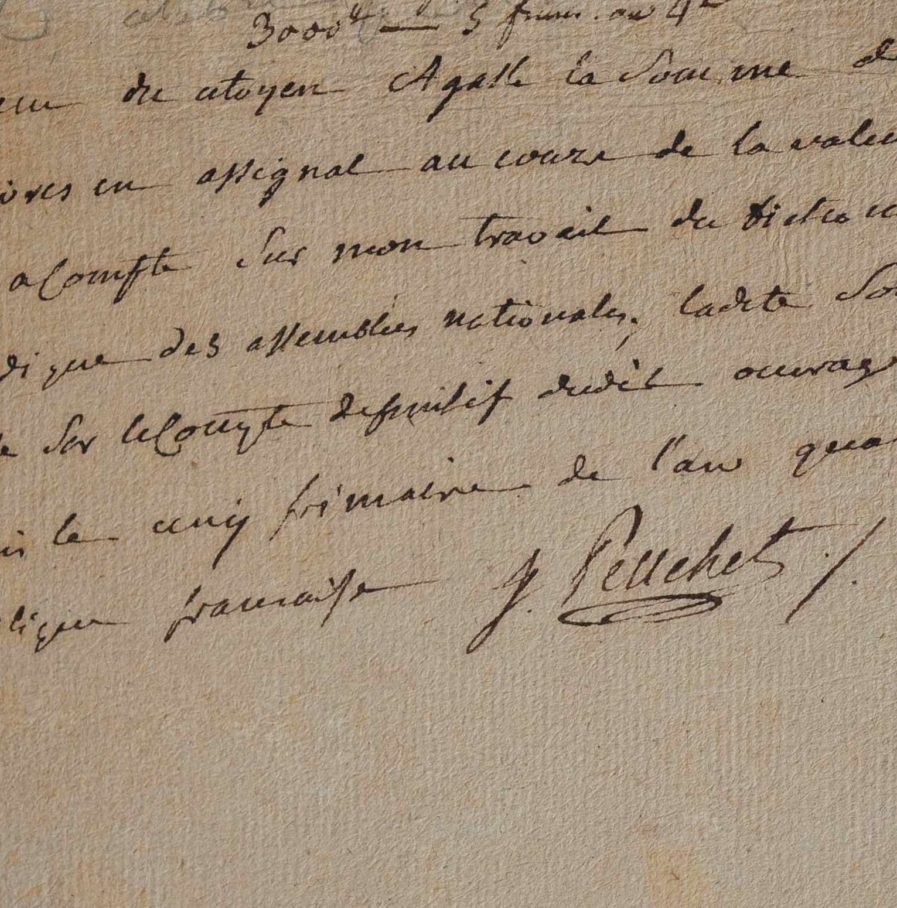 3000lt — 5 frim. an 4e
du citoyen Agasse la Somme de
en assignat au cours de la valeu
acompte Sur mon travail du diction
dique des assemblées nationales, ladite So
Sur le Compte definitif dudit ouvrag
le cinq frimaire de l'an qua
lique francaise J. Peuchet